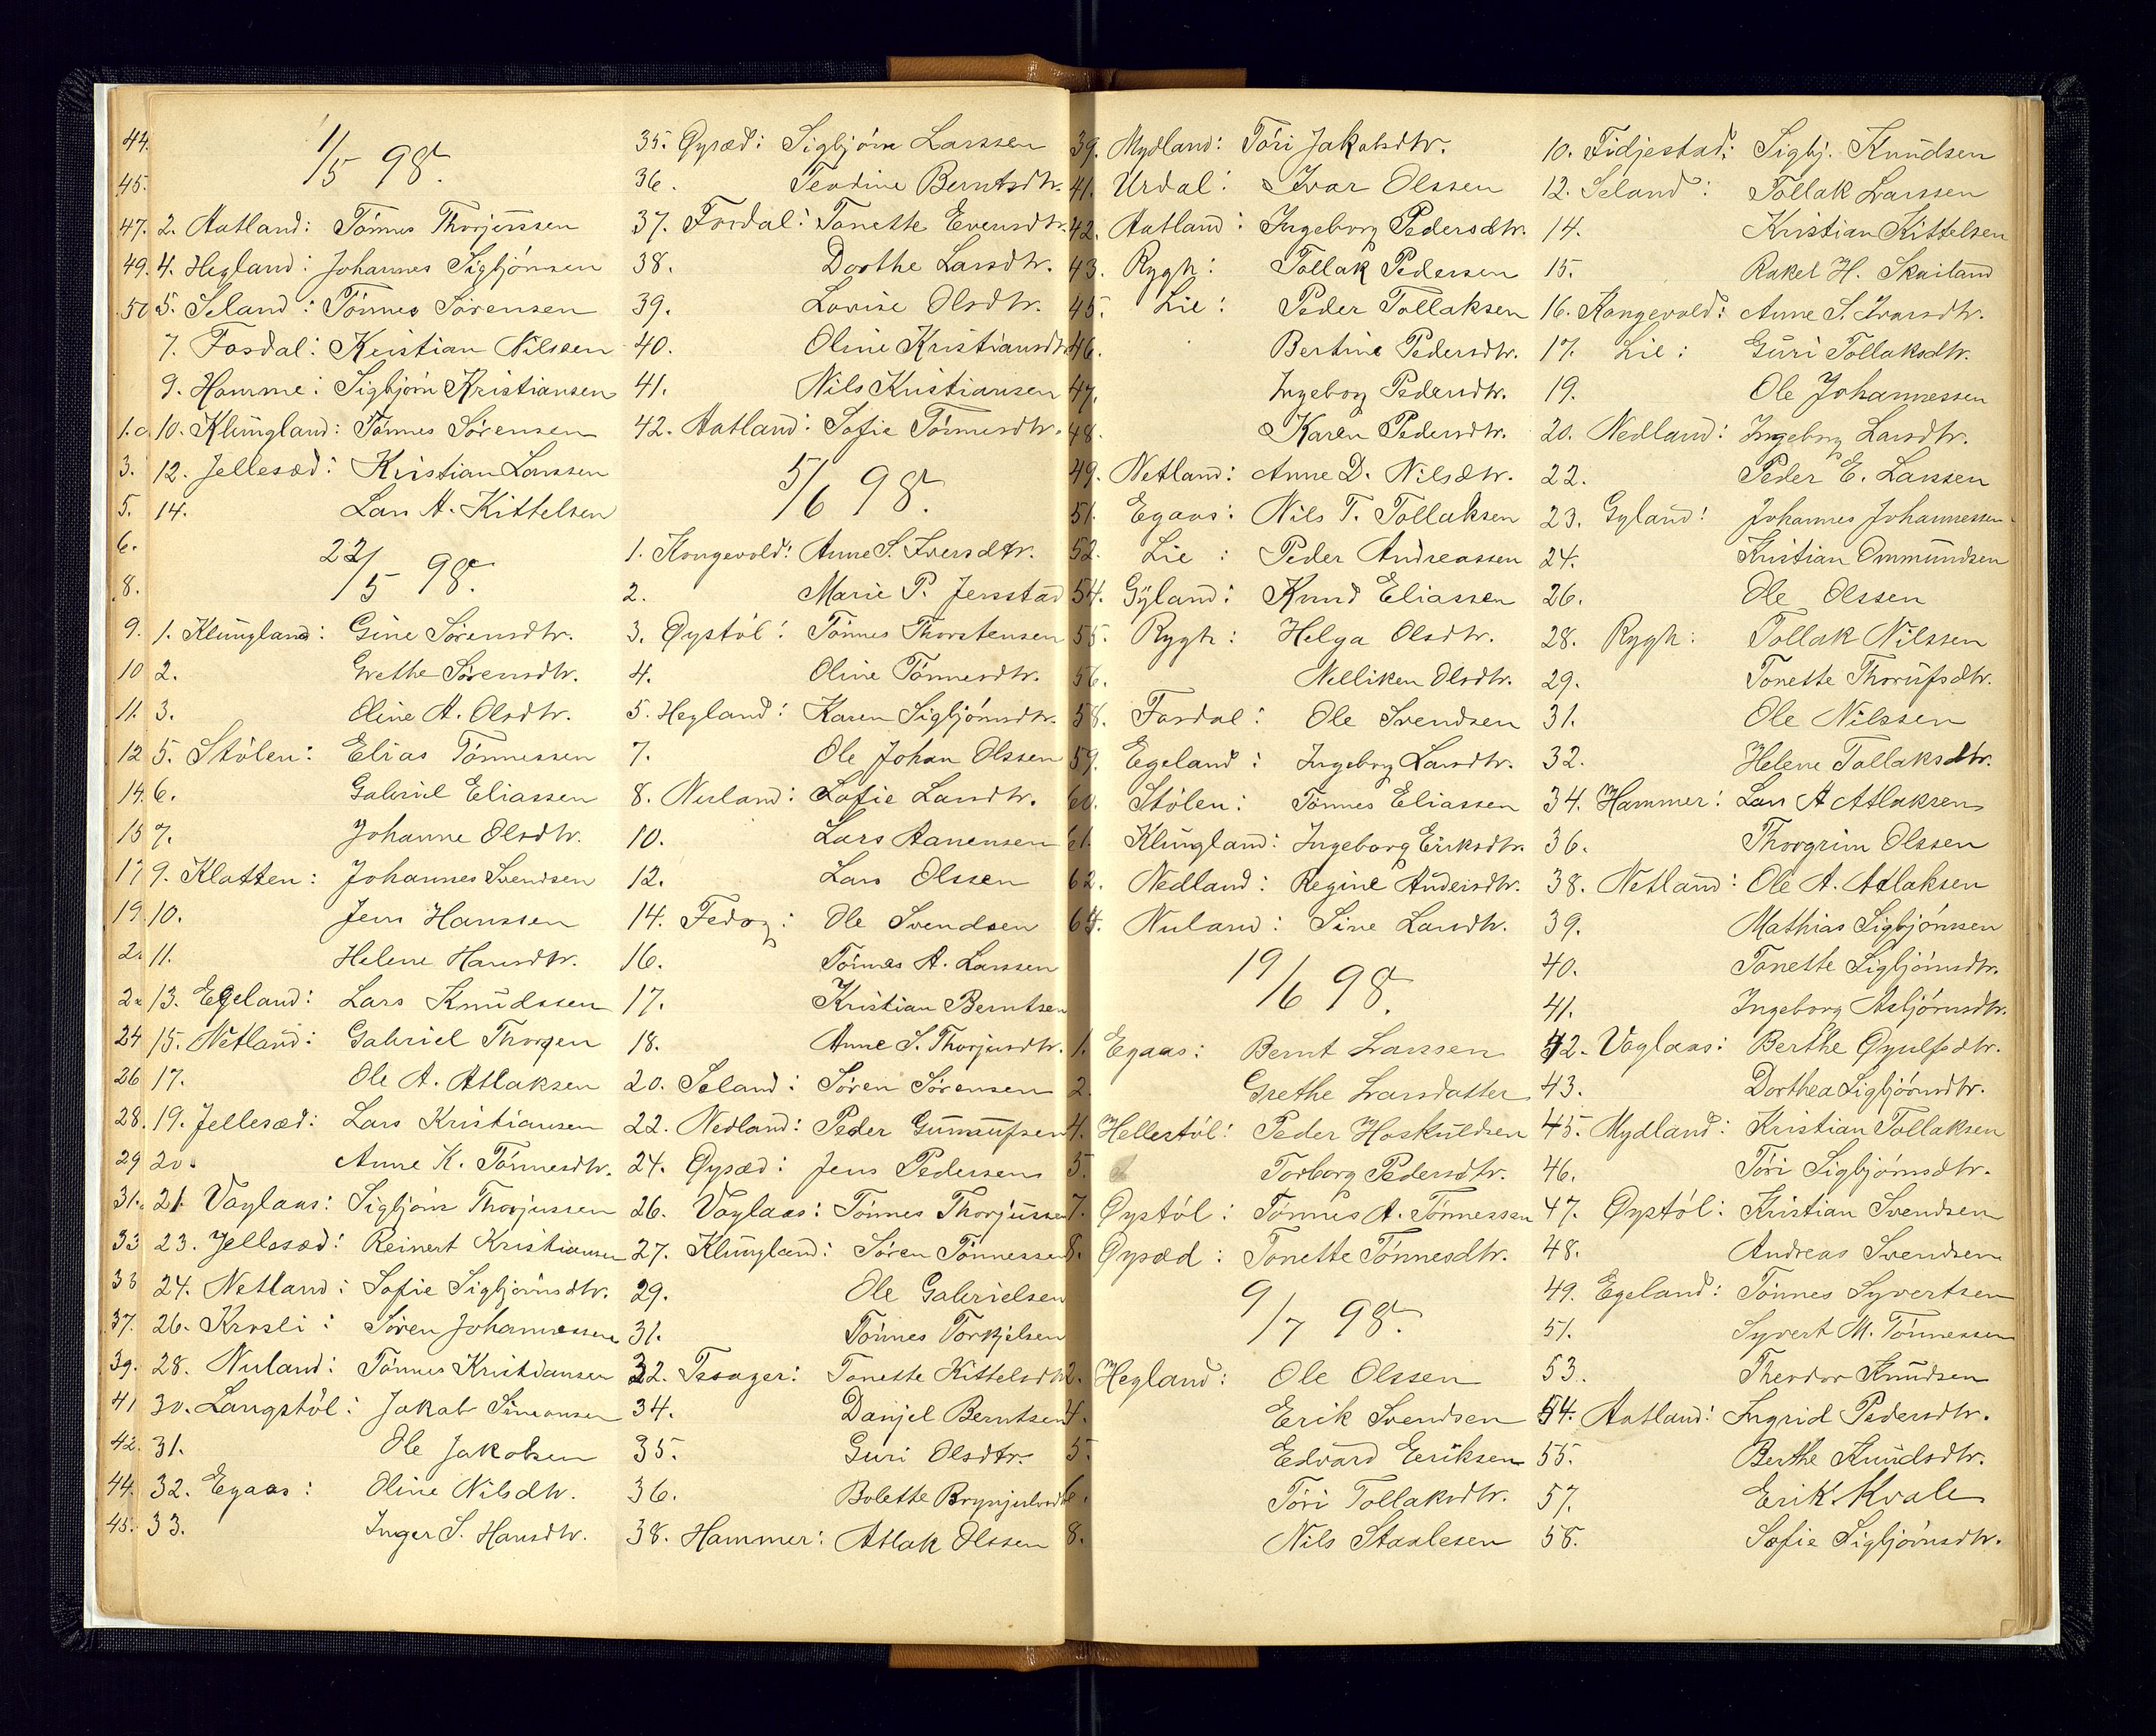 1/5 98.
2. Aatland: Tönnes Thorjussen
4. Hegland: Johannes Sigbjörnsen
5. Seland: Tönnes Sörensen
7. Fosdal: Kristian Nilssen
9. Hamme: Sigbjörn Kristiansen
10. Klungland: Tönnes Sörensen
12. Jellesæd: Kristian Larssen
14. Lars A. Kittelsen
22/5 98.
1. Klungland: Gine Sörensdtr.
2. Grethe Sörensdtr.
3. Oline A. Olsdtr.
5. Stölen: Elias Tönnessen
6. Gabriel Eliassen
7. Johanne Olsdtr.
9. Klatten: Johannes Svendsen
10. Jens Hanssen
11. Helene Hansdtr.
13. Egeland: Lars Knudssen
15. Netland: Gabriel Thorsen
17. Ole A. Atlaksen
19. Jellesæd: Lars Kristiansen
20. Anne K. Tönnesdtr.
21. Vaglaas: Sigbjörn Thorjussen
23. Jellesæd: Reinert Kristiansen
24. Netland: Sofie Sigbjörnsdtr.
26. Krosli: Sören Johannessen
28. Nuland: Tönnes Kristiansen
30. Langstöl: Jakob Simonsen
31. Ole Jakobsen
32. Egaas: Oline Nilsdtr.
33. Inger S. Hansdtr.
35. Øysæd: Sigbjörn Larssen
36. Teodine Berntsdtr.
37. Fosdal: Tonette Evensdtr.
38. Dorthe Larsdtr.
39. Lovise Olsdtr.
40. Oline Kristiansdtr.
41. Nils Kristiansen
42. Aatland: Sofie Tönnesdtr.
5/6 98.
1. Kongevold: Anne S. Iversdtr.
2. Marie P. Jersstad
3. Øystöl: Tönnes Thorstensen
4. Oline Tönnesdtr.
5. Hegland: Karen Sigbjörnsdtr.
7. Ole Johan Olssen
8. Nuland: Sofie Larsdtr.
10. Lars Aanensen
12. Lars Olssen
14. Fedog: Ole Svendsen
16. Tönnes A. Larssen
17. Kristian Berntsen
18. Anne S. Thorjusdtr.
20. Seland: Sören Sörensen
22. Nedland: Peder Gunnufsen
24. Øysæd: Jens Pedersen
26. Vaglaas: Tönnes Thorjussen
27. Klungland: Sören Tönnessen
29. Ole Gabrielsen
31. Tönnes Torkjelsen
32. Tesager: Tonette Kittelsdtr
34. Danjel Berntsen
35. Guri Olsdtr.
36. Bolette Brynjulvsdtr
38. Hammer: Atlak Olssen
39. Mydland: Töri Jakobsdtr.
41. Urdal: Ivar Olssen
42. Aatland: Ingeborg Pedersdtr.
43. Rygh: Tollak Pedersen
45. Lie: Peder Tollaksen
46. Bertine Pedersdtr.
47. Ingeborg Pedersdtr.
48. Karen Pedersdtr.
49. Netland: Anne D. Nilsdtr.
51. Egaas: Nils T. Tollaksen
52. Lie: Peder Andreassen
54. Gyland: Knud Eliassen
55. Rygh: Helga Olsdtr.
56. Nelliken Olsdtr.
58. Fosdal: Ole Svendsen
59. Egeland: Ingeborg Larsdtr.
60. Stölen: Tönnes Eliassen
61. Klungland: Ingeborg Eriksdtr.
62. Nedland: Regine Andersdtr.
64. Nuland: Sine Larsdtr.
19/6 98.
1. Egaas: Bernt Larssen
2. Grethe Larsdatter
4. Hellestöl: Peder Hoskuldsen
5. Torborg Pedersdtr.
7. Øystöl: Tönnes A. Tönnessen
8. Øysæd: Tonette Tönnesdtr.
9/7 98.
2. Hegland: Ole Olssen
4. Erik Svendsen
5. Edvard Eeriksen
6. Töri Tollaksdtr.
8. Nils Staalesen
10. Fidjestad: Sigbj. Knudsen
12. Seland: Tollak Larssen
14. Kristian Kittelsen
15. Rakel H. Skailand
16. Kongevold: Anne S. Ivarsdtr.
17. Lie: Guri Tollaksdtr.
19. Ole Johannessen
20. Nedland: Ingeborg Larsdtr.
22. Peder E. Larssen
23. Gyland: Johannes Johannessen
24. Kristian Ommundsen
26. Ole Olssen
28. Rygh: Tollak Nilssen
29. Tonette Thorufsdtr.
31. Ole Nilssen
32. Helene Tollaksdtr.
34. Hammer: Lars A Atlaksen
36. Thorgrim Olssen
38. Netland: Ole A. Atlaksen
39. Mathias Sigbjörnsen
40. Tonette Sigbjörnsdtr.
41. Ingeborg Asbjörnsdtr.
42. Vaglaas: Berthe Øyulfsdtr.
43. Dorthea Sigbjörnsdtr.
45. Mydland: Kristian Tollaksen
46. Töri Sigbjörnsdtr.
47. Øystöl: Kristian Svendsen
48. Andreas Svendsen
49. Egeland: Tönnes Syvertsen
51. Syvert M. Tönnessen
53. Theodor Knudsen
54. Aatland: Ingrid Pedersdtr.
55. Berthe Knudsdtr.
57. Erik Kvale
58. Sofie Sigbjörnsdtr.